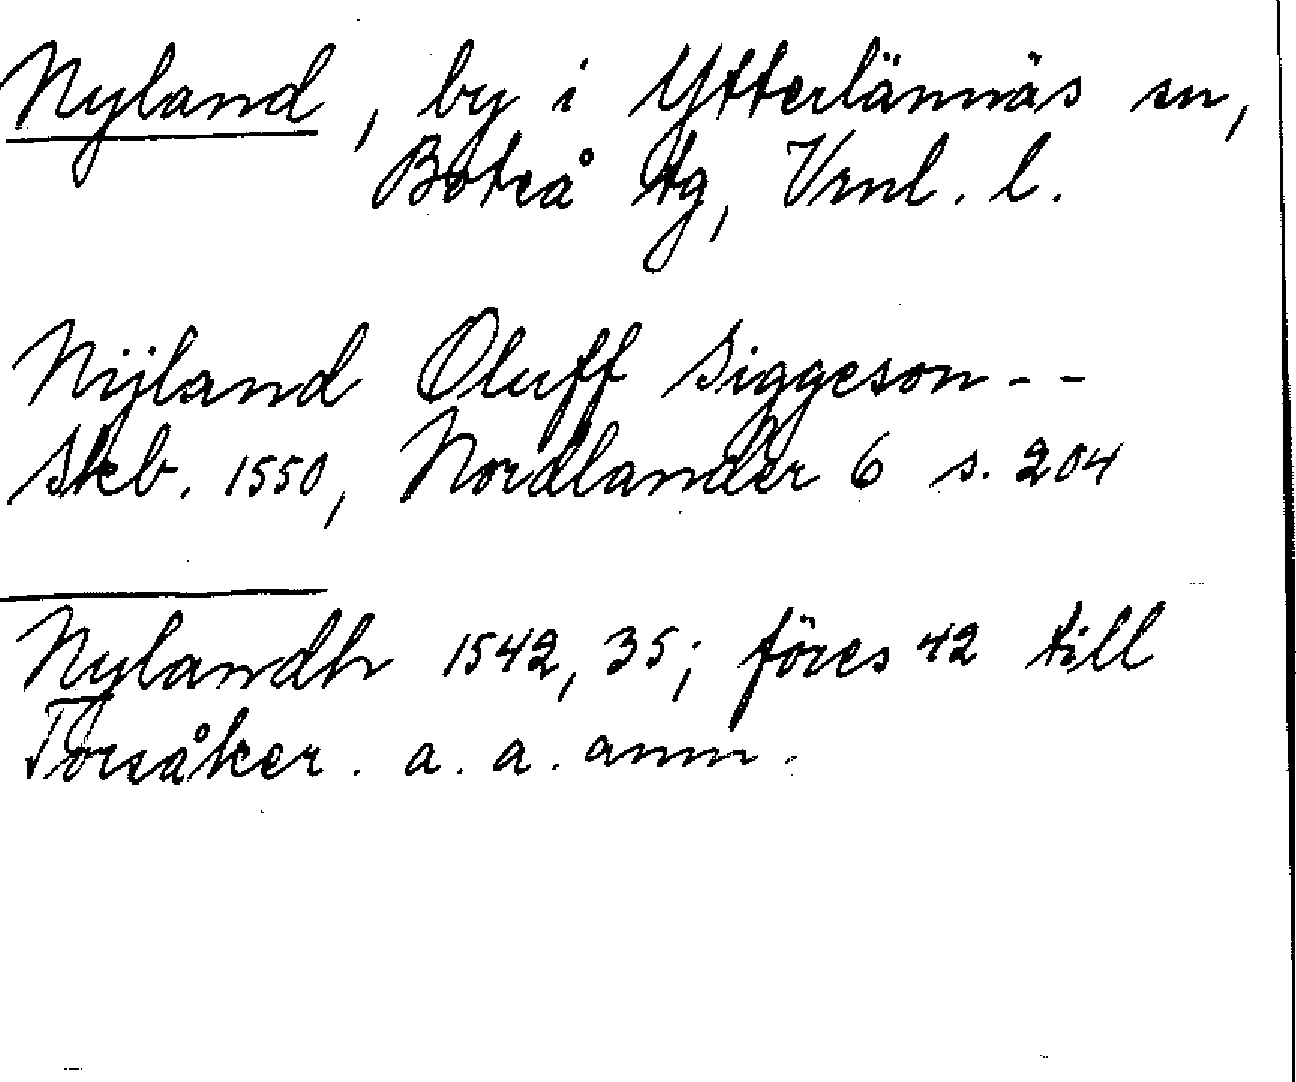 Nyland, by i Ytterlännäs sn,
Boteå tg, Vrnl. l.
Nÿland Oluff Siggeson - -
Skb. 1550, Nordlander 6 s. 204
Nylandh 1542, 35; föres 42 till
Torsåker. a. a. anm.